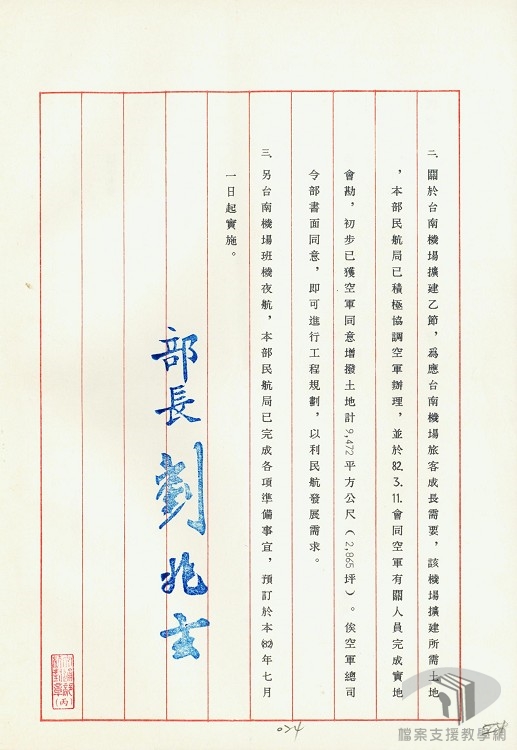 二、關於台南機場擴建乙節，為應台南機場旅客成長需要，該機場擴建所需土地
，本部民航局已積極協調空軍辦理，並於82.3.11.會同空軍有關人員完成實地
會勘，初步已獲空軍同意增撥土地計9,472平方公尺（2,865坪）。俟空軍總司
令部書面同意，即可進行工程規劃，以利民航發展需求。
三、另台南機場班機夜航，本部民航局已完成各項準備事宜，預訂於本(82)年七月
一日起實施。
部長劉兆玄
(丙)
024
檔案支援教學網